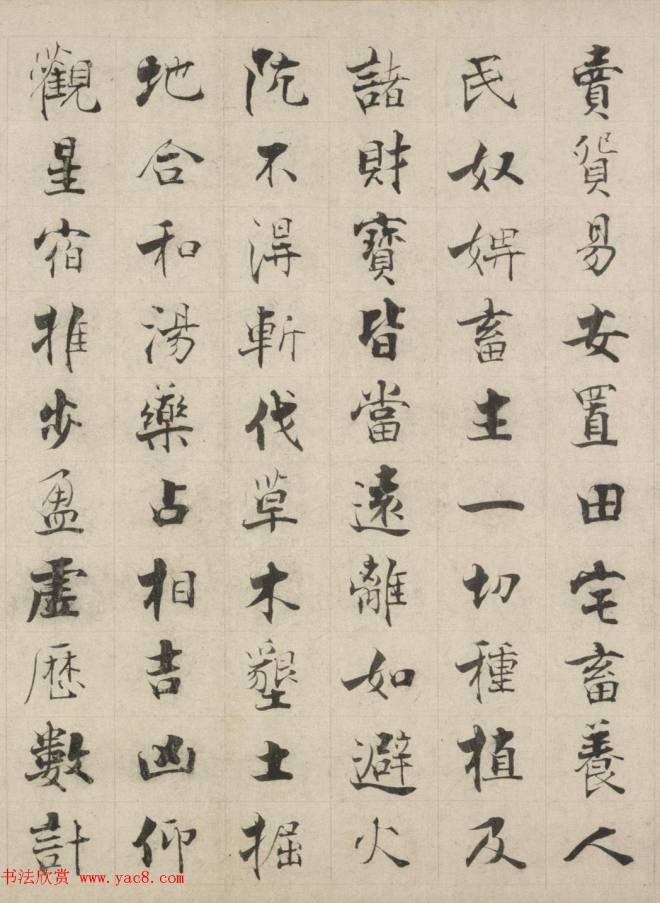 賣貿易安置田宅畜養人
民奴婢畜生一切種植及
諸財寶皆當遠離如避火
阬不得斬伐草木墾土掘
地合和湯藥占相吉凶仰
觀星宿推步盈虛曆數計
书法欣赏 www.yac8.com